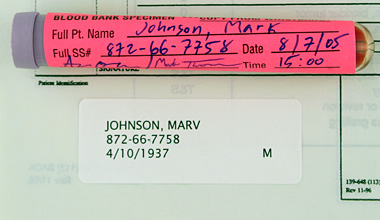 BLOOD BANK SPECIMEN
Full Pt. Name Johnson, Mark
Full SS# 872-66-7758 Date 8/7/05
SIGNATURE Time 15:00
Patient Identification
JOHNSON, MARV
872-66-7758
4/10/1937 M
139-648 (112
Rev 11-96